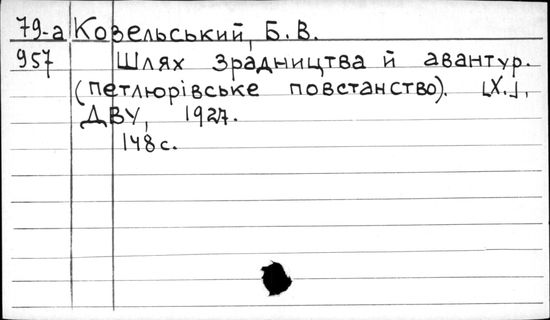 79-а Козельський, Б. В.
957 Шлях зрадництва й авантур.
(петлюрівське повстанство). [Х.],
ДВУ, 1927.
148 с.